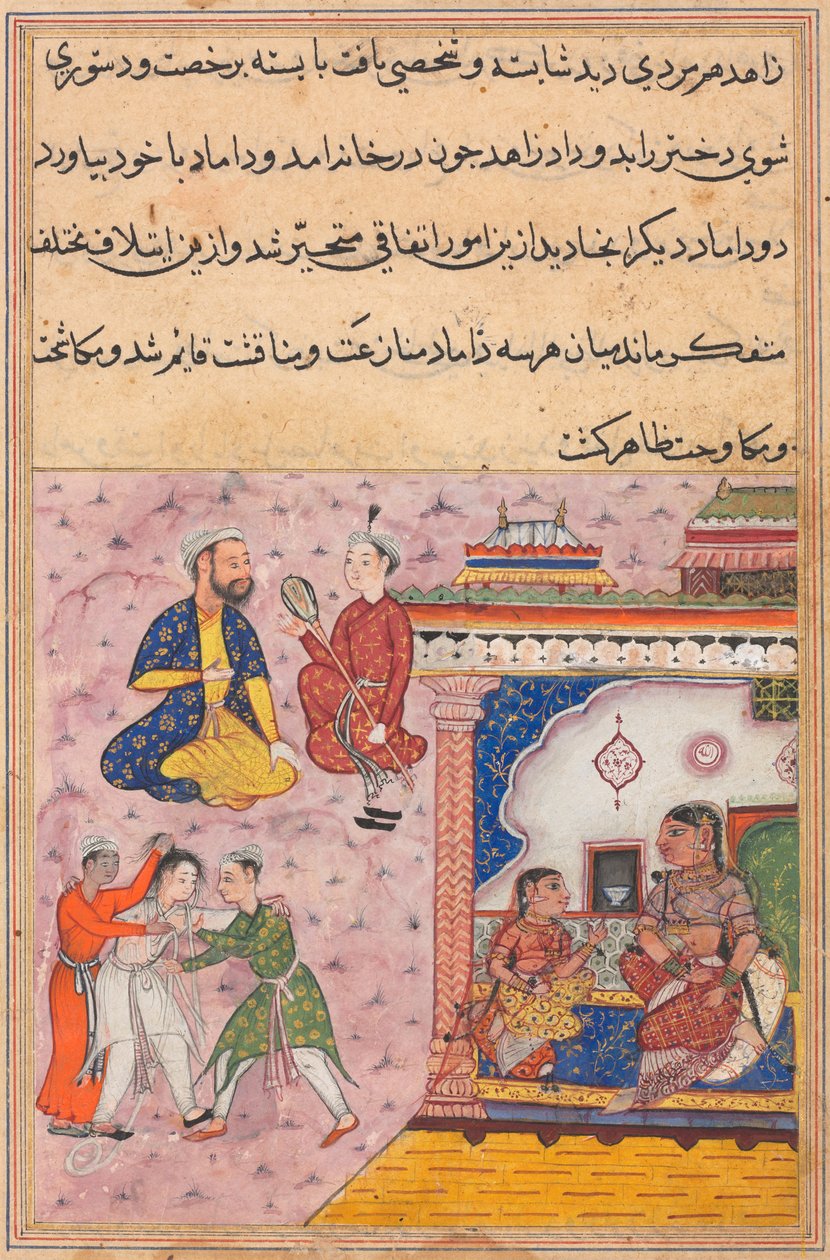 زاهد هر مردي ديد شابسته و شخصي يافت بابسته برخصت و دستوري
شوي دختر را بدو داد زاهد جون در خانه امد و داماد با خود بياورد
دو داماد ديكر انجا ديد ازين امور اتفاقي متحيّر شد و ازين ايتلاف مختلف
متفكر ماند ميان هر سه داماد منازعَت و مناقشت قايم شد و مكاشحت
و مكاوحت ظاهر كشت
الله